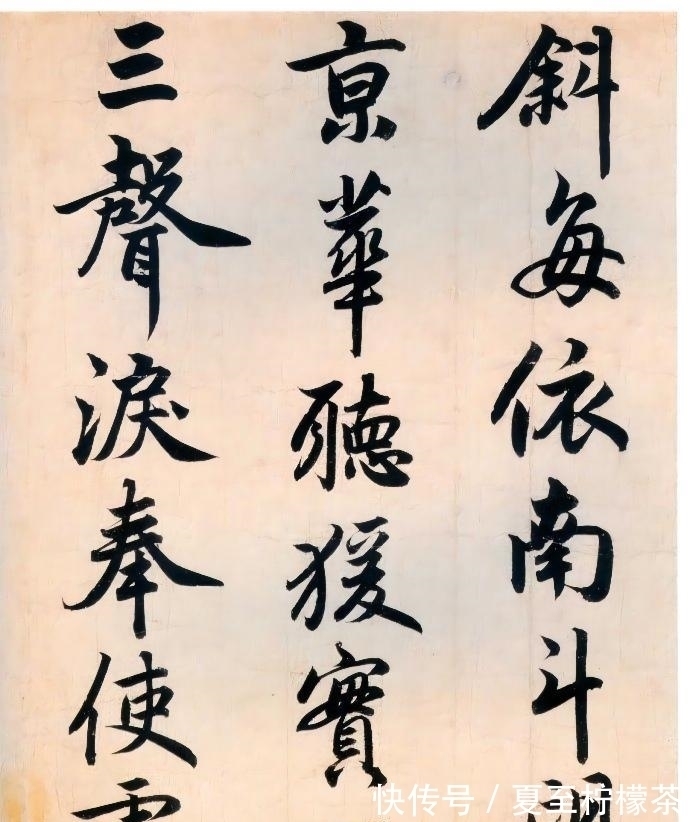 斜每依南斗
京華聽猨實
三聲淚奉使
快传号 / 夏至柠檬茶